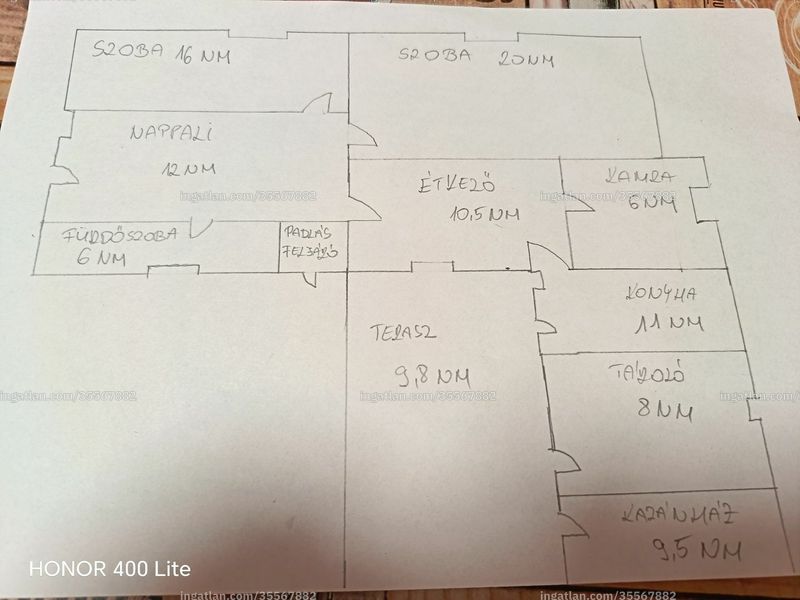 SZOBA 16 NM
SZOBA 20 NM
NAPPALI
12 NM
ÉTKEZŐ
10,5 NM
KAMRA
6 NM
FÜRDŐSZOBA
6 NM
PADLÁS
FELJÁRÓ
KONYHA
11 NM
TERASZ
9,8 NM
TÁROLÓ
8 NM
KAZÁNHÁZ
9,5 NM
ingatlan.com/35567882
ingatlan.com/35567882
ingatlan.com/35567882
ingatlan.com/35567882
ingatlan.com/35567882
ingatlan.com/35567882
ingatlan.com/35567882
HONOR 400 Lite